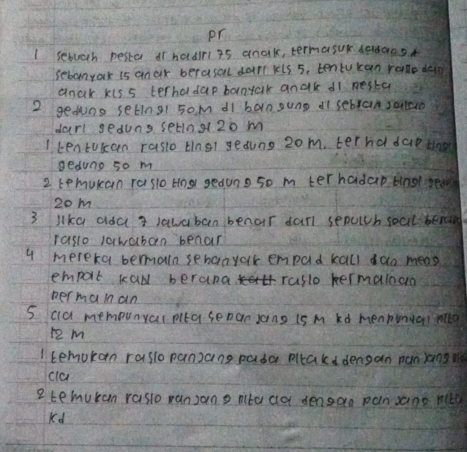 pr
1 sebuah pesta di hadiri 75 anak, termasuk
sebanyak 15 anak berasal dari kls 5, tentukan rasio dari
anak kls 5 terhadap banyak anak di pesta
2 gedung setinggi 50 M di bangung di sebrang
dari gedung setinggi 20 m
1 tentukan rasio tinggi gedung 20 m. terhadap tinggi
gedung 50 m
2 temukan rasio tinggi gedung 50 m terhadap tinggi
20 m
3 Jika ada 7 Jawaban benar dari sepuluh soal
rasio Jawaban benar
4 mereka bermain sebanyak empad kali dan
empat kali berapa rasio permainan
permainan
5 cia mempunyai pita sepanjang 15 M kd menpunyai pita
12 m
1 temukan rasio panjang pada pita kd dengan panjang
cia
2 temukan rasio panjang pita cia dengan panjang pita
kd